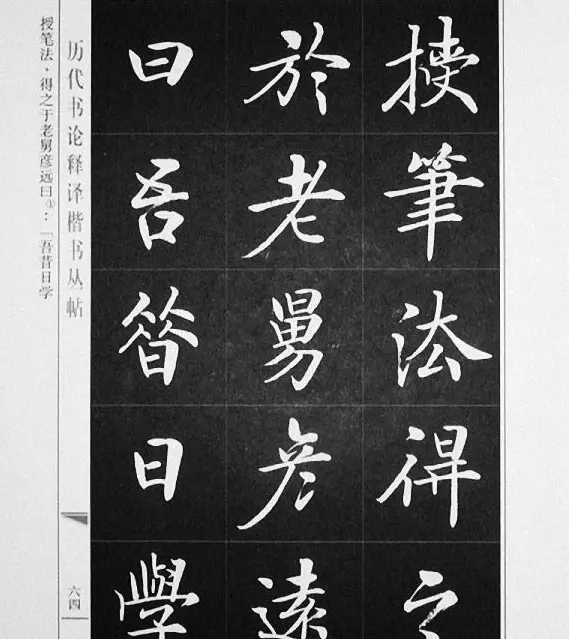 授筆法得之
於老舅彦遠
曰吾昝日學
历代书论释译楷书丛帖
六四
授笔法,得之于老舅彦远曰①:「吾昔日学